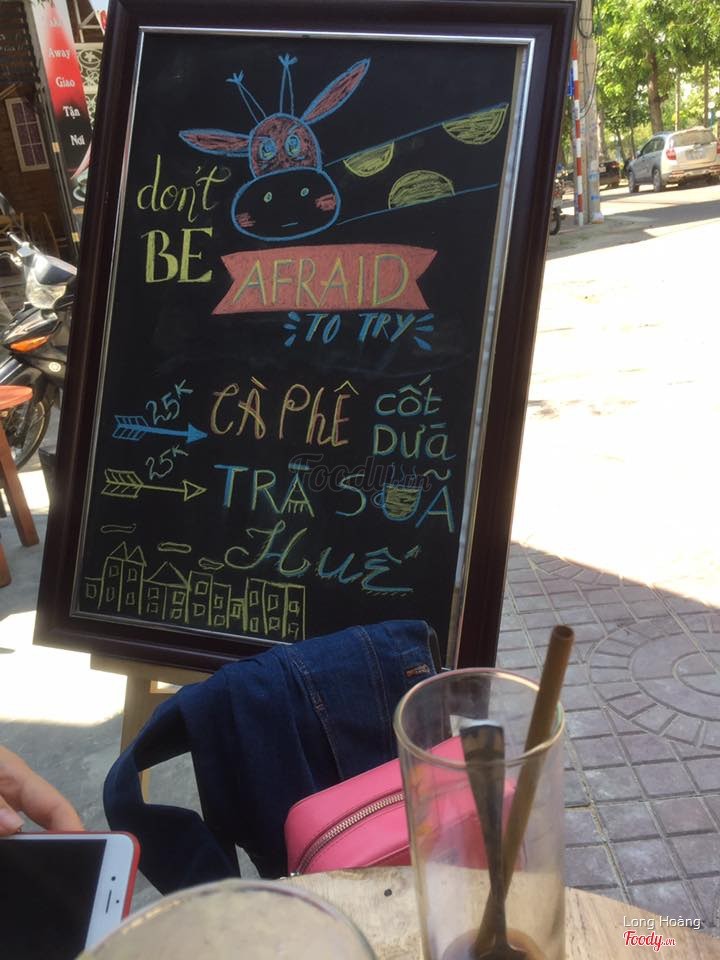 Away
Giao
Tận
Nơi
don't
BE
AFRAID
TO TRY
25K
CÀ PHÊ
CỐT
DỪA
25K
TRÀ SỮA
Huế
Foody.vn
Long Hoàng
Foody.vn